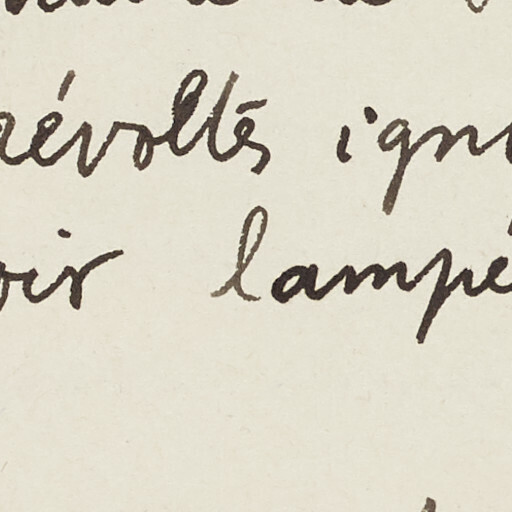 révoltés ign
oir lampé